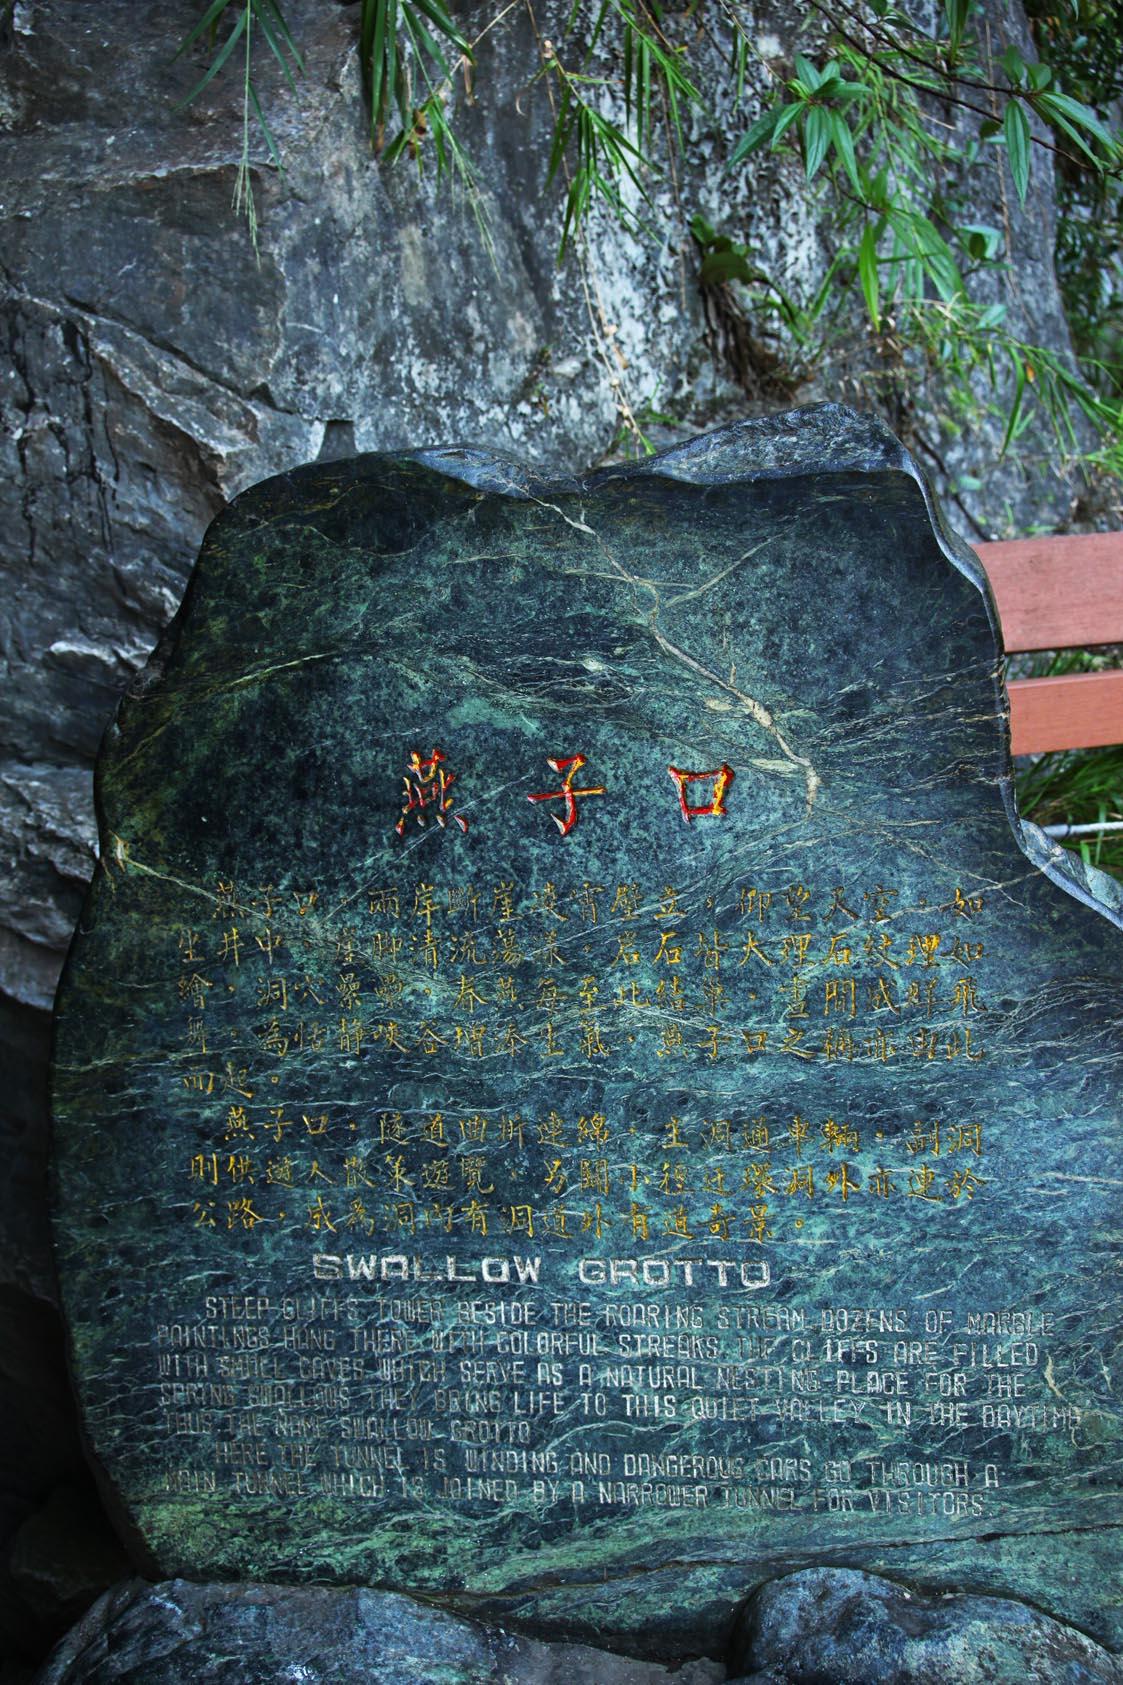 燕子口
燕子口，兩岸斷崖凌霄壁立，仰望天空，如
坐井中，崖腳清流蕩漾，岩石皆大理石紋理如
繪，洞穴纍纍，春燕每至此結巢，晝間成群飛
舞，為恬靜峽谷增添生氣，燕子口之稱亦由此
而起。
燕子口，隧道曲折連綿，主洞通車輛，副洞
則供遊人散策遊覽，另闢小徑迂環洞外亦連於
公路，成為洞內有洞道外有道奇景。
SWALLOW GROTTO
STEEP CLIFFS TOWER BESIDE THE ROARING STREAM. DOZENS OF MARBLE
PAINTINGS HANG THERE WITH COLORFUL STREAKS. THE CLIFFS ARE FILLED
WITH SMALL CAVES WHICH SERVE AS A NATURAL NESTING PLACE FOR THE
SPRING SWALLOWS THEY BRING LIFE TO THIS QUIET VALLEY IN THE DAYTIME
THUS THE NAME SWALLOW GROTTO
HERE THE TUNNEL IS WINDING AND DANGEROUS CARS GO THROUGH A
MAIN TUNNEL WHICH IS JOINED BY A NARROWER TUNNEL FOR VISITORS.